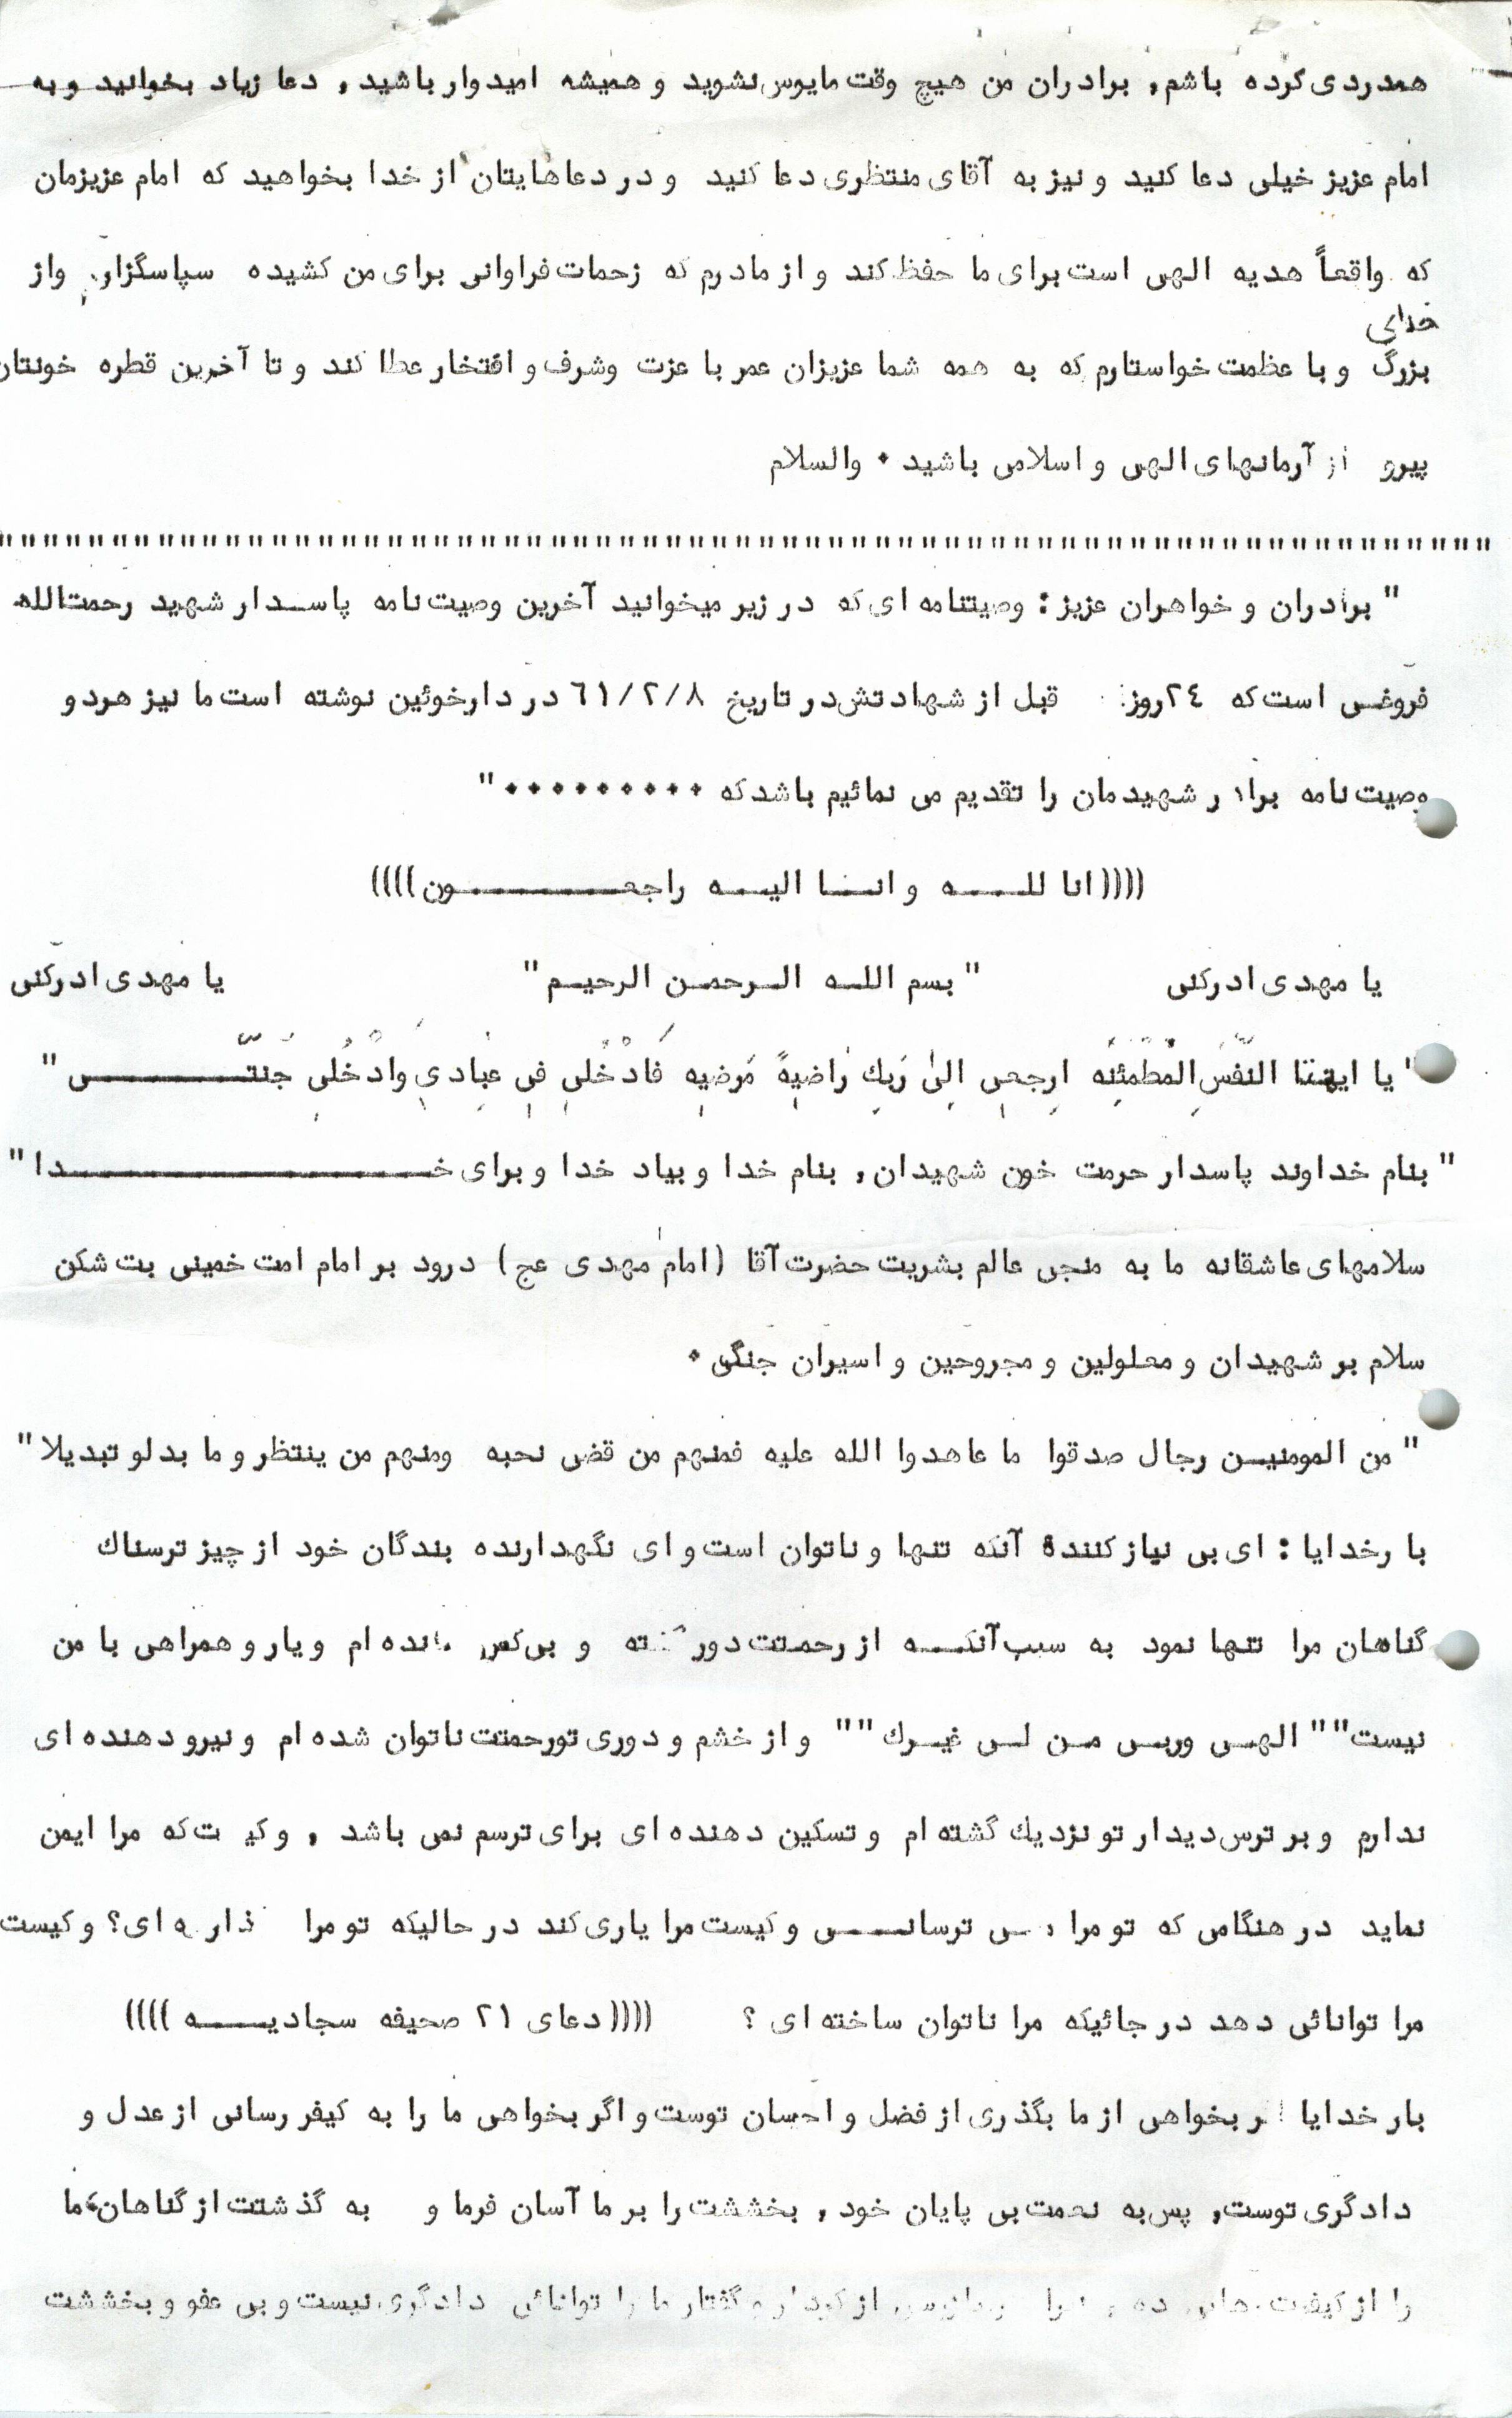 همدردی کرده باشم, برادران من هیچ وقت مایوس نشوید و همیشه امیدوار باشید, دعا زیاد بخوانید و به
امام عزیز خیلی دعا کنید و نیز به آقای منتظری دعا کنید و در دعاهایتان از خدا بخواهید که امام عزیزمان
که واقعاً هدیه الهی است برای ما حفظ کند و از مادرم که زحمات فراوانی برای من کشیده سپاسگزارم واز
خدای
بزرگ و با عظمت خواستارم که به همه شما عزیزان عمر با عزت وشرف و افتخار عطا کند و تا آخرین قطره خونتان
پیرو از آرمانهای الهی و اسلامی باشید ۰ والسلام
" برادران و خواهران عزیز : وصیتنامه ای که در زیر میخوانید آخرین وصیت نامه پاسدار شهید رحمت‌الله
فروغی است که ٢٤ روز قبل از شهادتش در تاریخ ٦١/٢/٨ در دارخوئین نوشته است ما نیز هر دو
وصیت نامه برادر شهیدمان را تقدیم می نمائیم باشد که ۰۰۰۰۰۰۰۰۰ "
((((انا للـــه و انـا الیـه راجعـــــون))))
یا مهدی ادرکنی " بسم اللـه الـرحمـن الرحیـم " یا مهدی ادرکنی
" یا ایهتا النَّفسِ المُطمَئِنه اِرجعی اِلیٰ رَبِكِ راضیهً مَرضیه فَادْخُلیِ فیِ عِبادیِ وَادْخُلیِ جَنتّـــــی "
" بنام خداوند پاسدار حرمت خون شهیدان, بنام خدا و بیاد خدا و برای خـــــــــدا "
سلامهای عاشقانه ما به منجی عالم بشریت حضرت آقا (امام مهدی عج) درود بر امام امت خمینی بت شکن
سلام بر شهیدان و معلولین و مجروحین و اسیران جنگی ۰
" من المومنیـن رجال صدقوا ما عاهدوا الله علیه فمنهم من قضی نحبه ومنهم من ینتظر و ما بدلو تبدیلا "
با رخدایا : ای بی نیاز کنندهٔ آنکه تنها و ناتوان است و ای نگهدارنده بندگان خود از چیز ترسناك
گناهان مرا تنها نمود به سبب آنکـــه از رحمتت دور گشته و بی کس مانده ام و یار و همراهی با من
نیست" " الهـی وربـی مـن لـی غیـرك " " و از خشم و دوری تورحمتت ناتوان شده ام و نیرو دهنده ای
ندارم و بر ترس دیدار تو نزدیك گشته ام و تسکین دهنده ای برای ترسم نمی باشد , و کیست که مرا ایمن
نماید در هنگامی که تو مرا می ترسانـــی و کیست مرا یاری کند در حالیکه تو مرا ای؟ و کیست
مرا توانائی دهد در جائیکه مرا ناتوان ساخته ای ؟ ((((دعای ٢١ صحیفه سجادیـــه ))))
بار خدایا اگر بخواهی از ما بگذری از فضل و احسان توست و اگر بخواهی ما را به کیفر رسانی از عدل و
دادگری توست, پس به نعمت بی پایان خود , بخششت را بر ما آسان فرما و به گذشتت از گناهان ما
را از کیفرت ده , از کردار و گفتار ما را توانائی دادگری نیست و بی عفو و بخششت